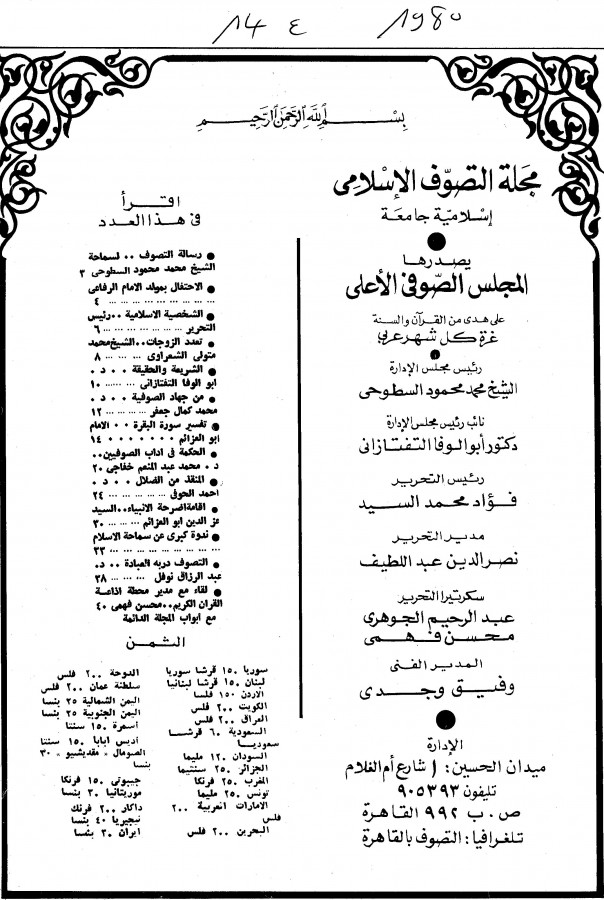 1980 ع 14
بسم الله الرحمن الرحيم
مجلة التصوف الإسلامى
إسلامية جامعة
يصدرها
المجلس الصوفى الأعلى
على هدى من القرآن والسنة
غرة كل شهر عربى
رئيس مجلس الإدارة
الشيخ محمد محمود السطوحى
نائب رئيس مجلس الإدارة
دكتور أبو الوفا التفتازانى
رئيس التحرير
فؤاد محمد السيد
مدير التحرير
نصر الدين عبد اللطيف
سكرتيرا التحرير
عبد الرحيم الجوهرى
محسن فهمى
المدير الفنى
وفيق وجدى
الإدارة
ميدان الحسين: ١ شارع أم الغلام
تليفون ٩٠٥٣٩٣
ص.ب ٩٩٢ القاهرة
تلغرافيا: التصوف بالقاهرة
اقرأ
فى هذا العدد
● رسالة التصوف .. لسماحة
الشيخ محمد محمود السطوحى ٣
● الاحتفال بمولد الامام الرفاعى
... ... ... ... ... ... ... ٤
● الشخصية الاسلامية .. رئيس
التحرير ... ... ... ... ... ٦
● تعدد الزوجات.. الشيخ محمد
متولى الشعراوى ... ... ... ٨
● الشريعة والحقيقة .. د.
ابو الوفا التفتازانى ... ... ١٠
● من جهاد الصوفية .. د.
محمد كمال جعفر ... ... ... ١٢
● تفسير سورة البقرة .. الامام
ابو العزائم . . . . . . . ١٤
● الحكمة فى اداب الصوفيين..
د. محمد عبد المنعم خفاجى ٢٠
● المنقذ من الضلال .. د.
احمد الحوفى ... ... ... ٢٤
● اقامة اضرحة الانبياء.. السيد
عز الدين ابو العزائم ... ... ٣٠
● ندوة كبرى عن سماحة الاسلام
... ... ... ... ... ... ... ٣٣
● التصوف دربه العبادة .. د.
عبد الرزاق نوفل ... ... ... ٣٨
● لقاء مع مدير محطة اذاعة
القران الكريم.. محسن فهمى ٤٠
مع ابواب المجلة الدائمة
الثمن
سوريا ١٥٠ قرشا سوريا
لبنان ١٥٠ قرشا لبنانيا
الاردن ١٥٠ فلسا
الكويت ٢٠٠ فلس
العراق ٢٠٠ فلس
السعودية ٦٠ قرشا
سعوديا
السودان ١٢٠ مليما
الجزائر ٢٥٠ سنتيما
المغرب ٢٥٠ فرنكا
تونس ٢٥٠ مليما
الامارات العربية ٢٠٠
فلس
البحرين ٢٠٠ فلس
الدوحة ٢٠٠ فلس
سلطنة عمان ٢٠٠ فلس
اليمن الشمالية ٢٥ بنسا
اليمن الجنوبية ٢٥ بنسا
أسمرة ١٥٠ سنتا
أديس ابابا ١٥٠ سنتا
الصومال « مقديشيو » ٣٠
بنسا
جيبوتى ١٥٠ فرنكا
موريتانيا ٣٠ بنسا
داكار ٢٠٠ فرنك
نيجيريا ٤٠ بنسا
ايران ٣٠ بنسا